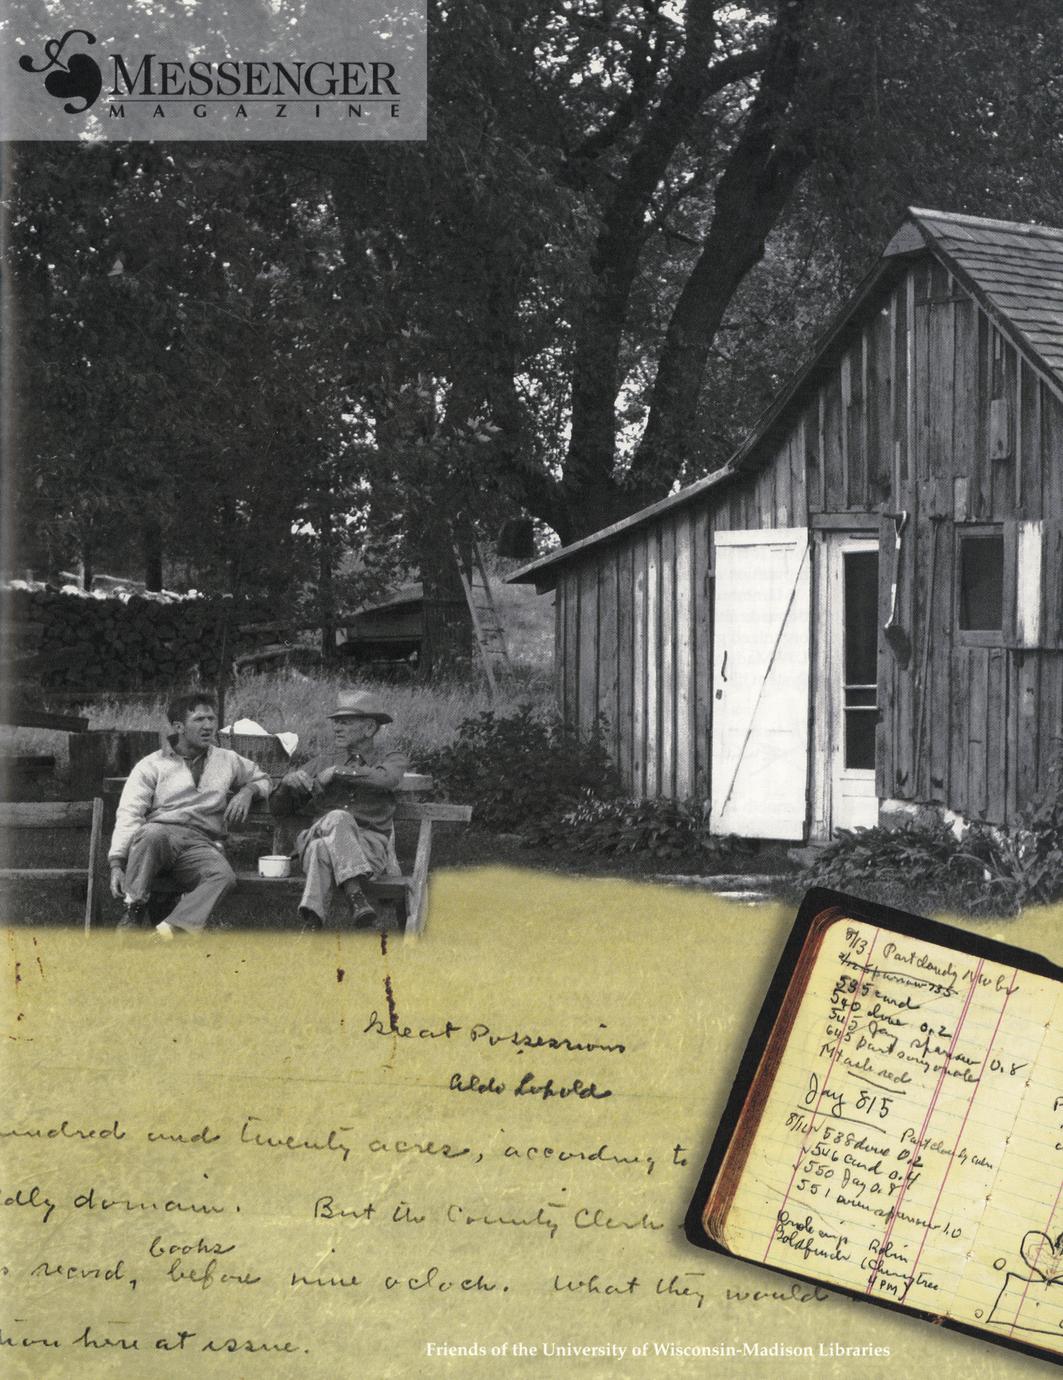 MESSENGER
MAGAZINE
Great Possessions
Aldo Leopold
undred and twenty acres, according to
dly domain. But the County Clerk
books
record, before nine oclock. What they would
tion here at issue.
8/13 Partcloudy NW br
535 card
540 dove 0.2
545 Jay sparrow 0.8
Jay 815
538 dove 0.2 Partcloudy calm
√546 card 0.4
√550 Jay 0.8
551 0
Robin
Goldfinch (Cherrytree
4 PM)
Friends of the University of Wisconsin-Madison Libraries